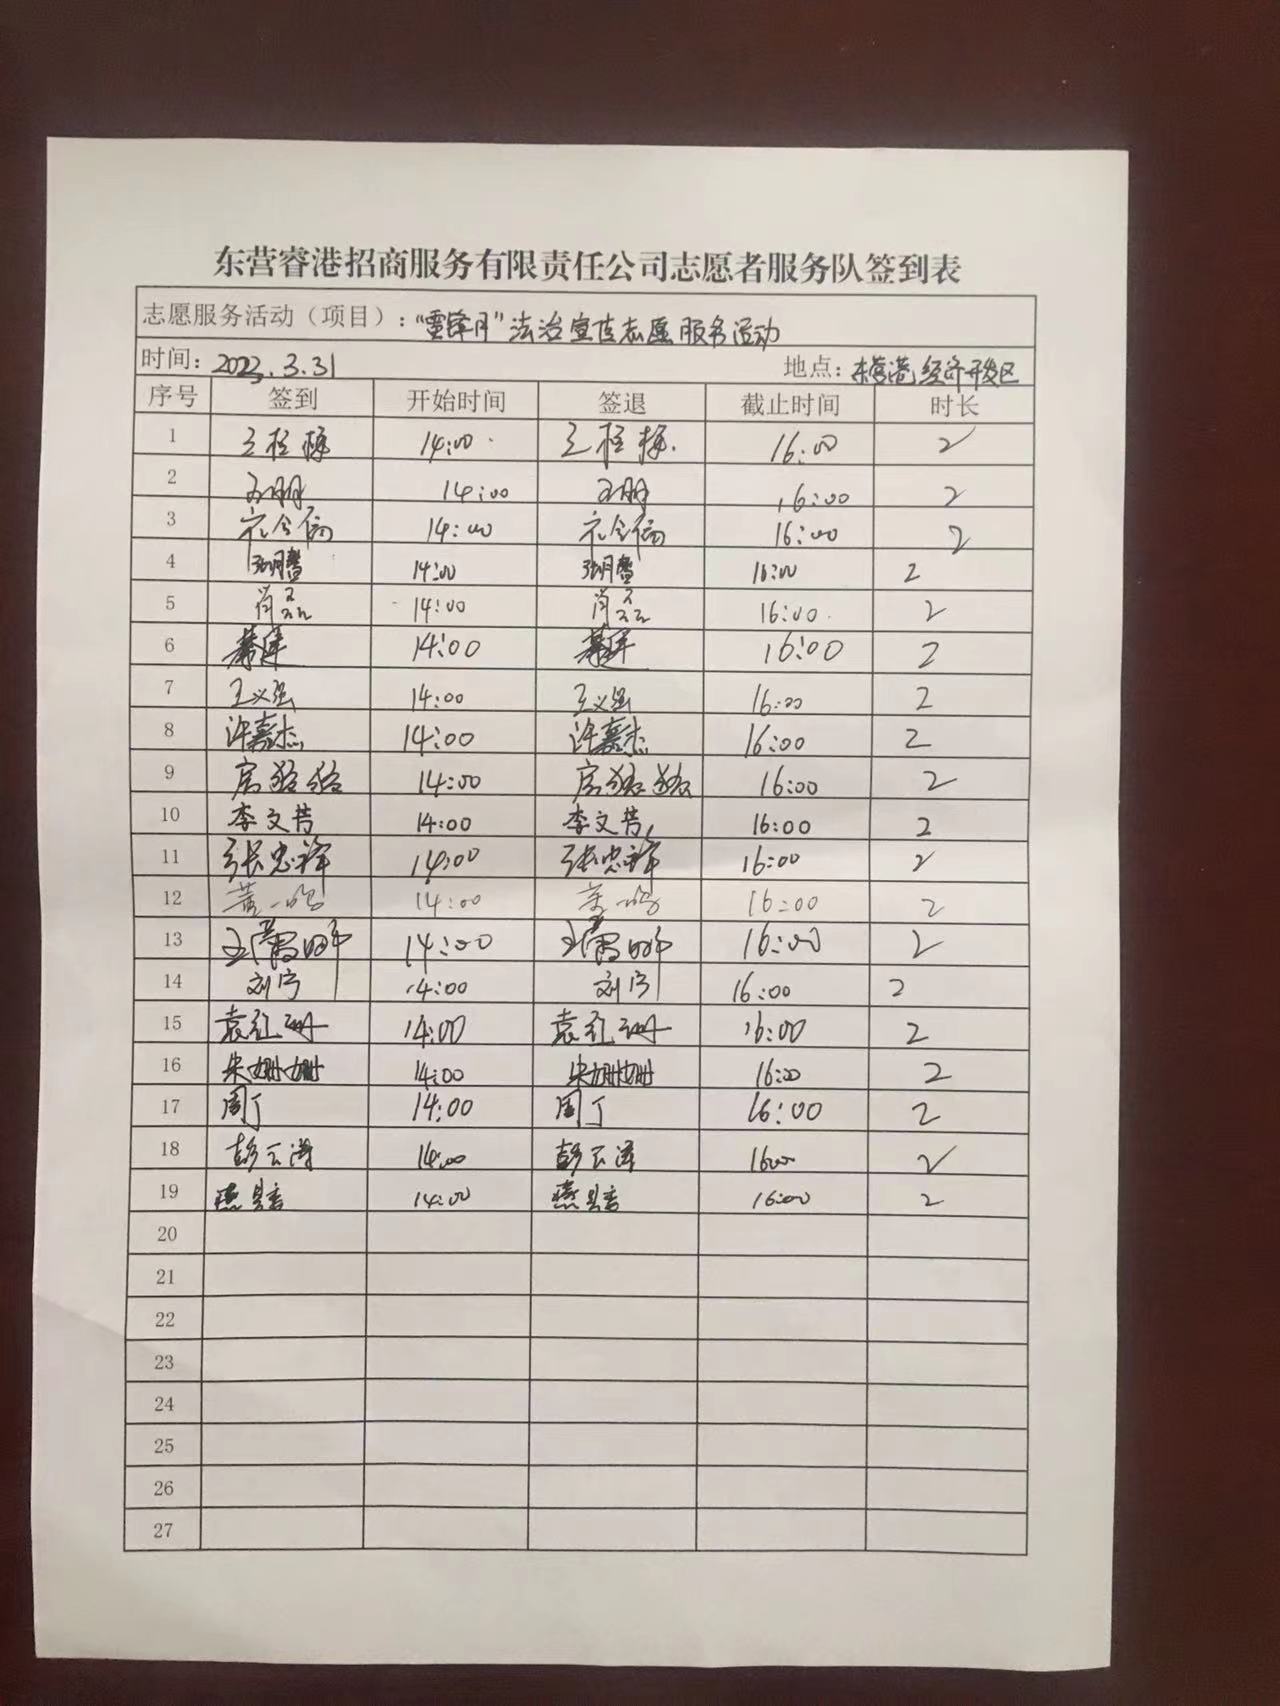 东营睿港招商服务有限责任公司志愿者服务队签到表
志愿服务活动（项目）：“雷锋月”法治宣传志愿服务活动
时间：2023.3.31 地点：东营港经济开发区
序号 签到 开始时间 签退 截止时间 时长
1 14:00 16:00 2
2 14:00 16:00 2
3 14:00 16:00 2
4 14:00 16:00 2
5 肖磊 14:00 肖磊 16:00 2
6 14:00 16:00 2
7 王义强 14:00 王义强 16:00 2
8 许嘉杰 14:00 许嘉杰 16:00 2
9 14:00 16:00 2
10 李文芳 14:00 李文芳 16:00 2
11 张忠祥 14:00 张忠祥 16:00 2
12 14:00 16:00 2
13 14:00 16:00 2
14 刘宁 14:00 刘宁 16:00 2
15 袁红珊 14:00 袁红珊 16:00 2
16 朱姗姗 14:00 朱姗姗 16:00 2
17 周丁 14:00 周丁 16:00 2
18 彭云涛 14:00 彭云涛 16:00 2
19 14:00 16:00 2
20
21
22
23
24
25
26
27